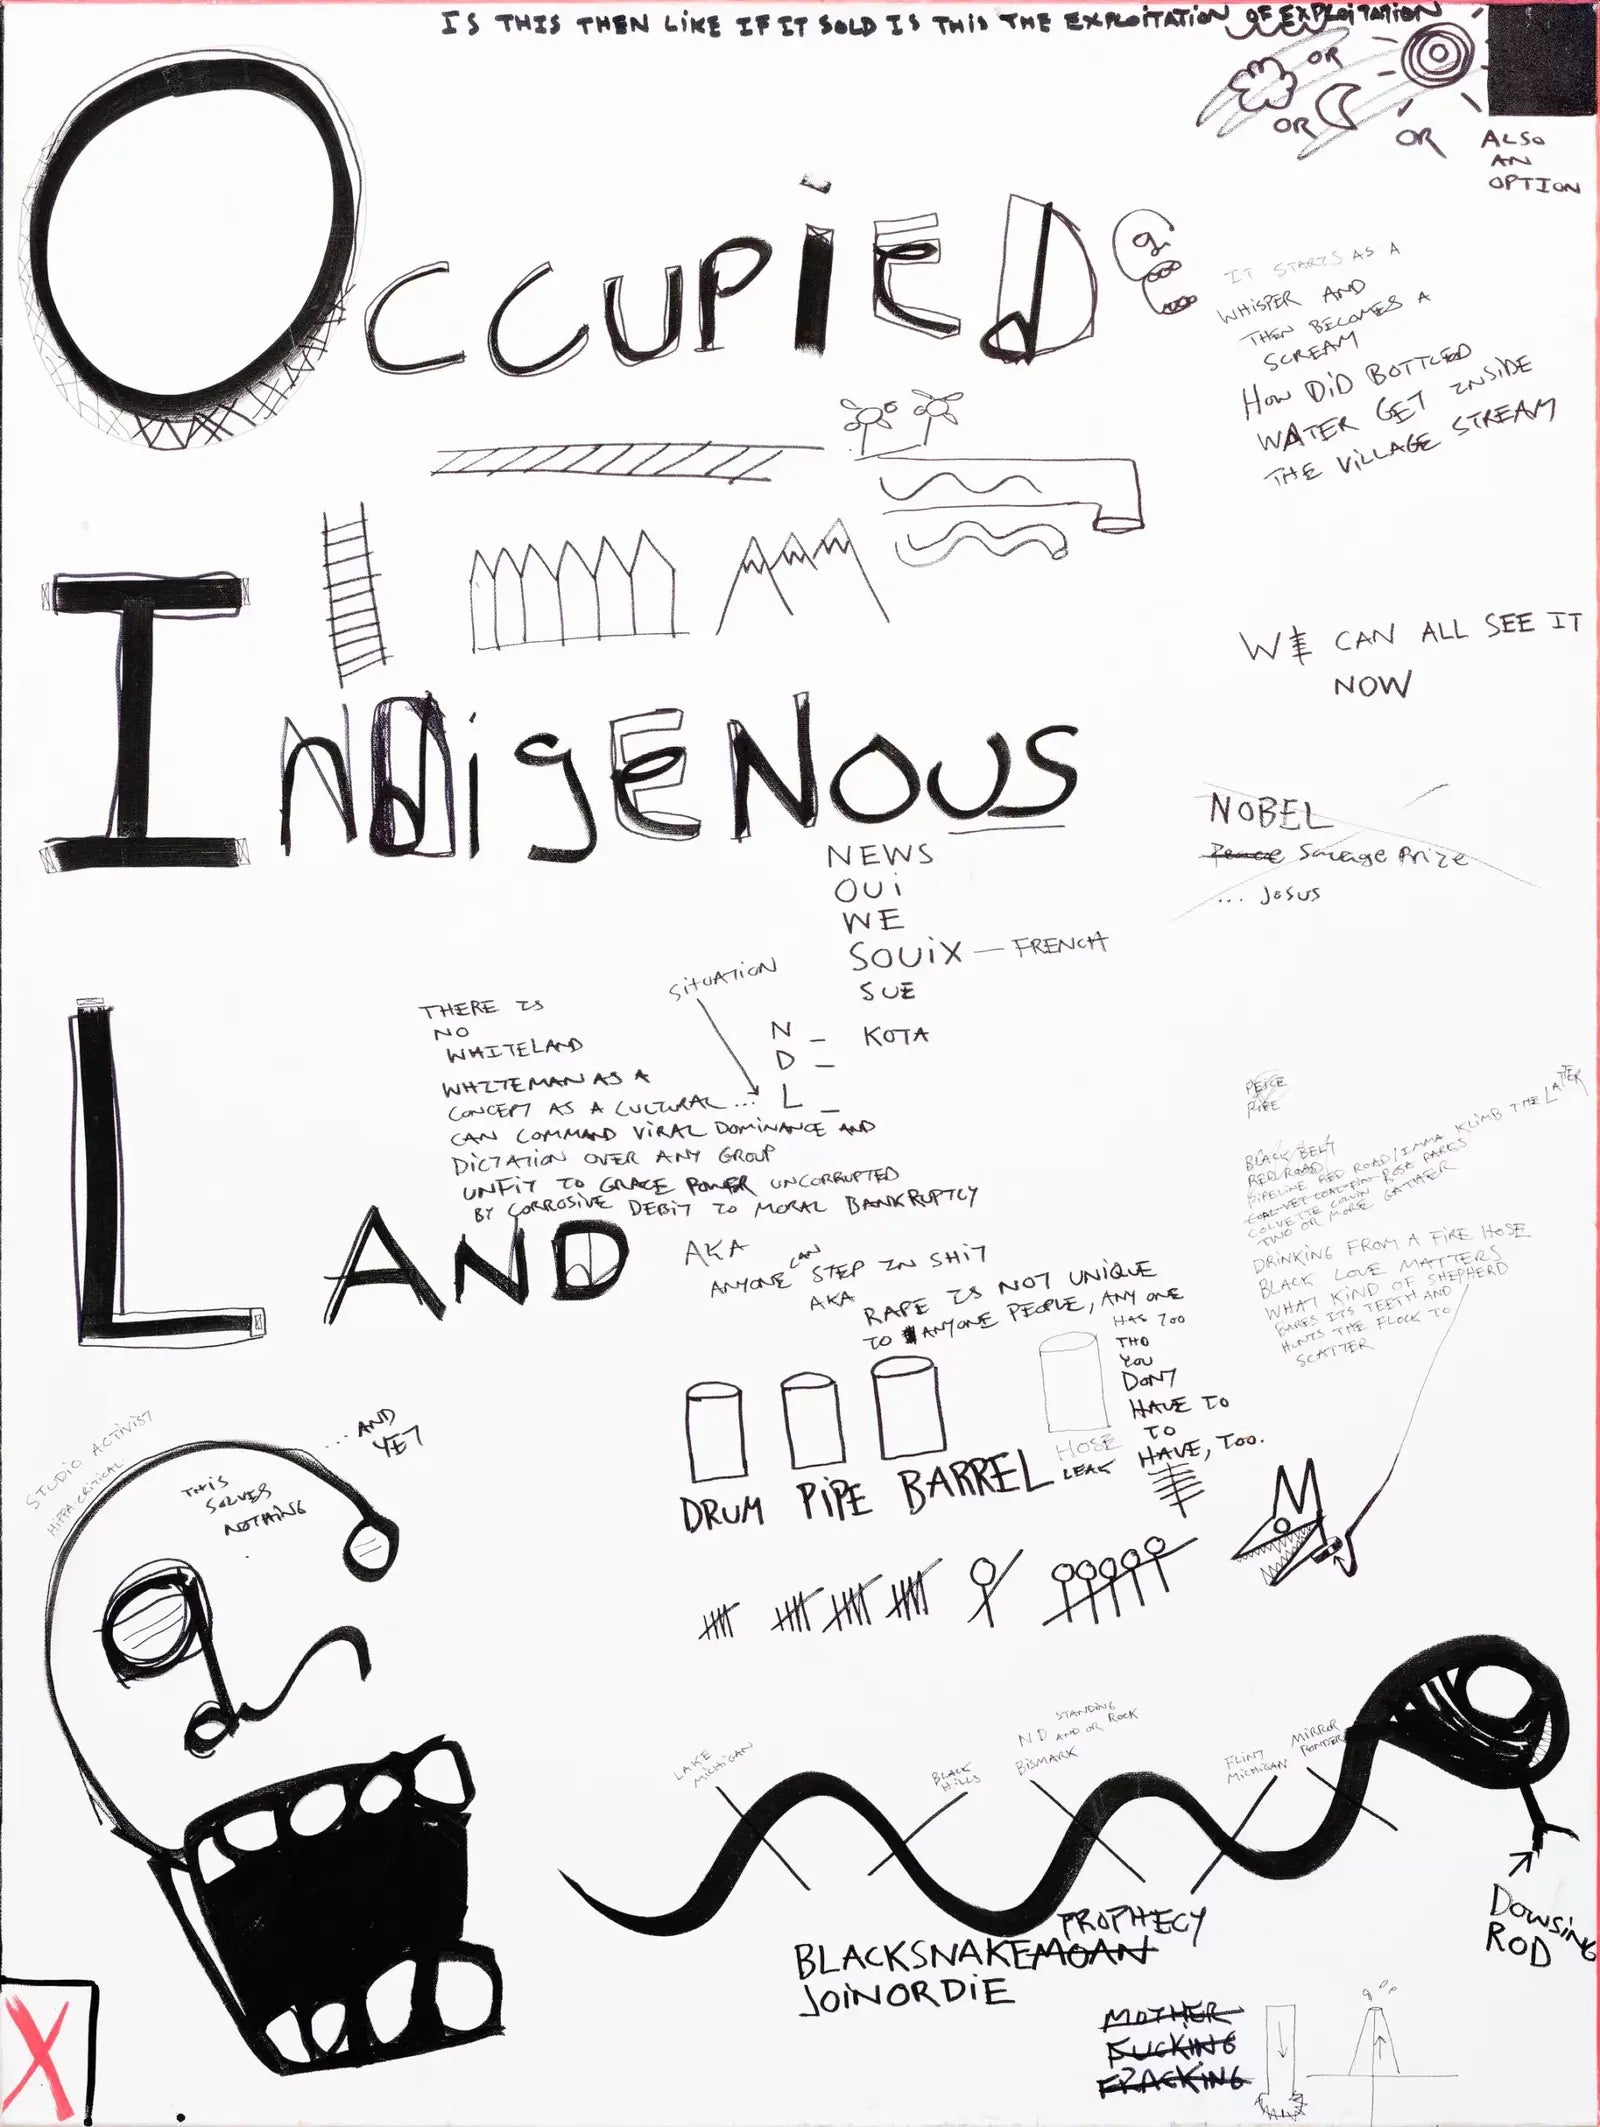 IS THIS THEN LIKE IF IT SOLD IS THIS THE EXPLOITATION OF EXPLOITATION
OR
OR
OR
ALSO
AN
OPTION
OCCUPIED
IT STARTS AS A
WHISPER AND
THEN BECOMES A
SCREAM
HOW DID BOTTLED
WATER GET INSIDE
THE VILLAGE STREAM
WE CAN ALL SEE IT
NOW
INDIGENOUS
NOBEL
Peace Savage Prize
... Josus
NEWS
OUI
WE
SOUIX — FRENCH
SUE
SITUATION
N _ KOTA
D _
L _
THERE IS
NO
WHITELAND
WHITEMAN AS A
CONCEPT AS A CULTURAL ...
CAN COMMAND VIRAL DOMINANCE AND
DICTATION OVER ANY GROUP
UNFIT TO GRACE POWER UNCORRUPTED
BY CORROSIVE DEBIT TO MORAL BANKRUPTCY
LAND
AKA
ANYONE CAN STEP IN SHIT
AKA
RAPE IS NOT UNIQUE
TO ANYONE PEOPLE, ANY ONE
HAS TOO
THO
YOU
DON'T
HAVE TO
TO
HAVE, TOO.
PEACE
PIPE
BLACK BELT
RED ROAD
PIPELINE RED ROAD/IMMA KLIMB THE LATTER
COLVETTE COLVIN ROSA PARKS
TWO OR MORE GATHER
DRINKING FROM A FIRE HOSE
BLACK LOVE MATTERS
WHAT KIND OF SHEPHERD
BARES ITS TEETH AND
HUNTS THE FLOCK TO
SCATTER
DRUM PIPE BARREL
HOSE
LEAK
STUDIO ACTIVIST
HIPPA-CRITICAL
THIS
SOLVES
NOTHING
... AND
YET
LAKE
MICHIGAN
BLACK
HILLS
STANDING
ND AND OR ROCK
BISMARK
FLINT
MICHIGAN
MIRROR
DOWSING
ROD
PROPHECY
BLACKSNAKEMOAN
JOINORDIE
MOTHER
FUCKING
FRACKING
X